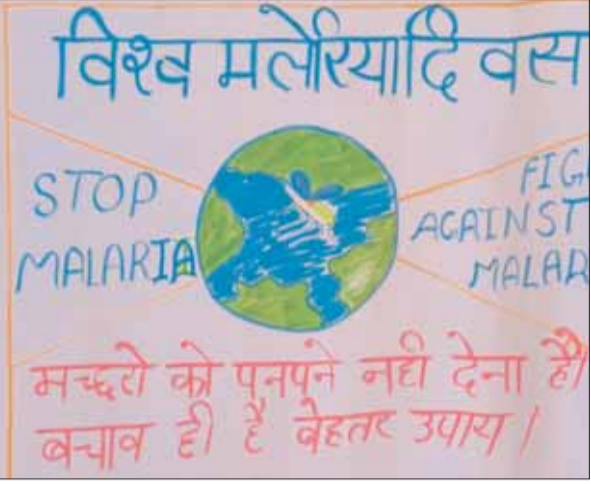 विश्व मलेरिया दिवस
STOP
MALARIA
FIG
AGAINST
MALAR
मच्छरो को पनपने नही देना है।
बचाव ही है बेहतर उपाय।